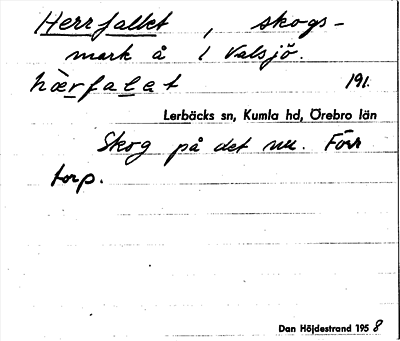 Herrfallet, skogs-
mark å 1 Valsjö.
hæ̀rfalet 191.
Lerbäcks sn, Kumla hd, Örebro län
Skog på det nu. Förr
torp.
Dan Höjdestrand 1958